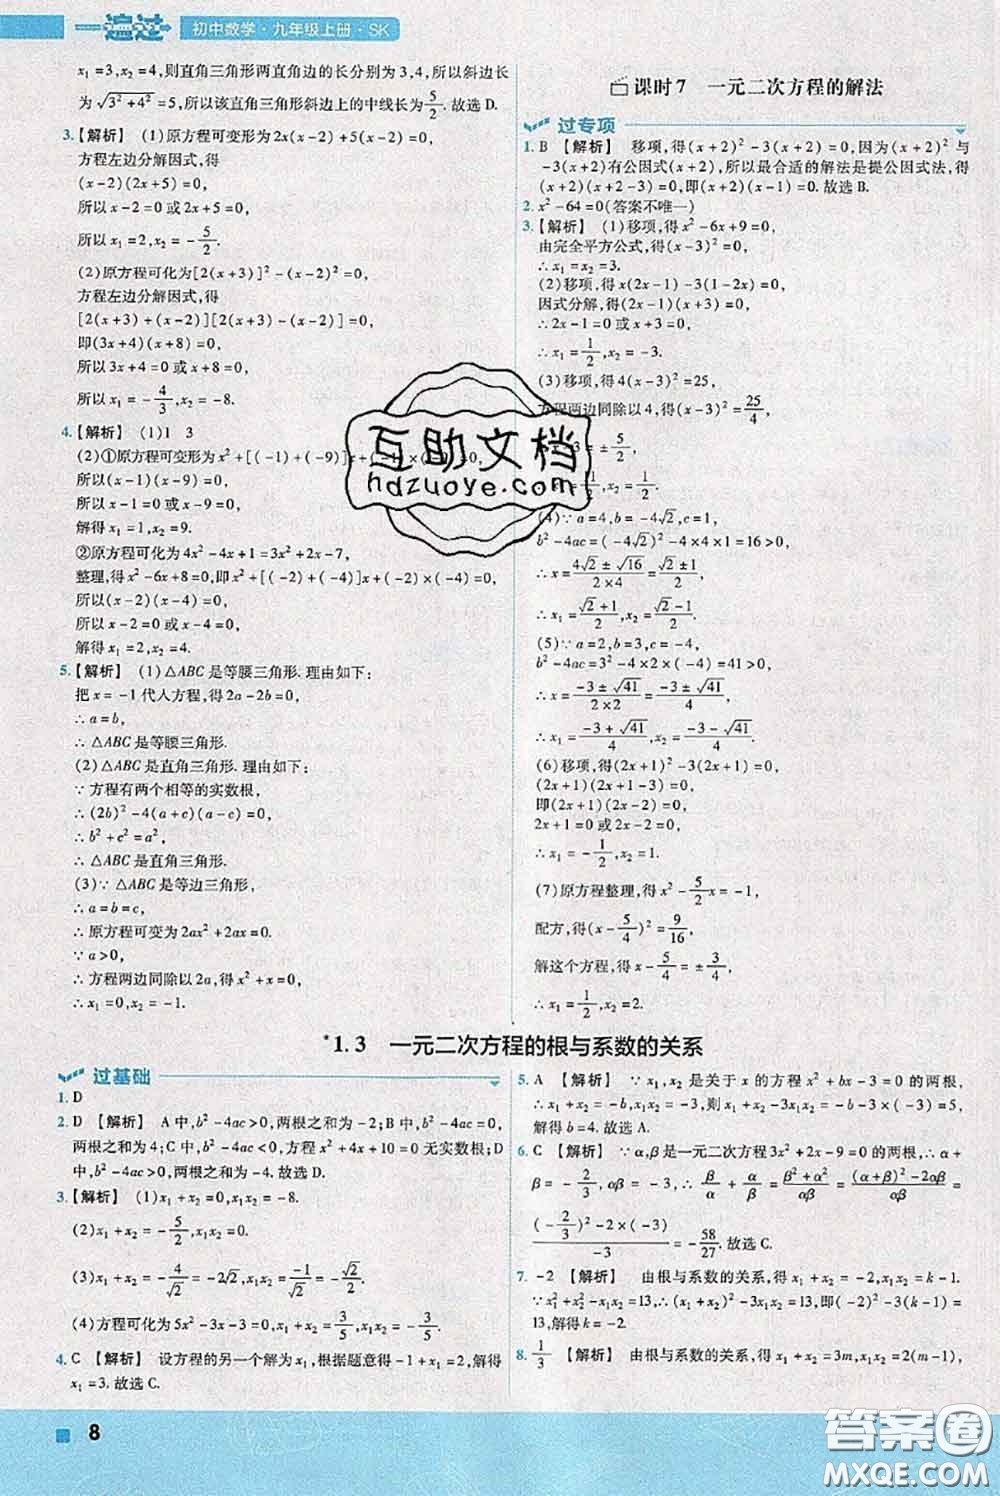 一遍过 初中数学·九年级上册·SK
x₁=3,x₂=4,则直角三角形两直角边的长分别为3,4,所以斜边长
为√(3²+4²)=5,所以该直角三角形斜边上的中线长为5/2.故选D.
3.【解析】 (1)原方程可变形为2x(x-2)+5(x-2)=0,
方程左边分解因式,得
(x-2)(2x+5)=0,
所以x-2=0或2x+5=0,
所以x₁=2,x₂=-5/2.
(2)原方程可化为[2(x+3)]²-(x-2)²=0,
方程左边分解因式,得
[2(x+3)+(x-2)][2(x+3)-(x-2)]=0,
即(3x+4)(x+8)=0,
所以3x+4=0或x+8=0,
所以x₁=-4/3,x₂=-8.
4.【解析】 (1)1 3
(2)①原方程可变形为x²+[(-1)+(-9)]x+(-1)×(-9)=0,
所以(x-1)(x-9)=0,
所以x-1=0或x-9=0,
解得x₁=1,x₂=9.
②原方程可化为4x²-4x+1=3x²+2x-7,
整理,得x²-6x+8=0,即x²+[(-2)+(-4)]x+(-2)×(-4)=0,
所以(x-2)(x-4)=0,
所以x-2=0或x-4=0,
解得x₁=2,x₂=4.
5.【解析】 (1)△ABC是等腰三角形.理由如下:
把x=-1代入方程,得2a-2b=0,
∴a=b,
∴△ABC是等腰三角形.
(2)△ABC是直角三角形.理由如下:
∵方程有两个相等的实数根,
∴(2b)²-4(a+c)(a-c)=0,
∴b²+c²=a²,
∴△ABC是直角三角形.
(3)∵△ABC是等边三角形,
∴a=b=c,
∴原方程可变为2ax²+2ax=0.
∵a>0,
∴方程两边同除以2a,得x²+x=0,
∴x₁=0,x₂=-1.
课时7 一元二次方程的解法
过专项
1.B 【解析】 移项,得(x+2)²-3(x+2)=0,因为(x+2)²与
-3(x+2)有公因式(x+2),所以最合适的解法是提公因式法,得
(x+2)(x+2-3)=0,即(x+2)(x-1)=0.故选B.
2.x²-64=0(答案不唯一)
3.【解析】 (1)移项,得x²-6x+9=0,
由完全平方公式,得(x-3)²=0,
∴x₁=x₂=3.
(2)移项,得x(2x-1)-3(1-2x)=0,
因式分解,得(2x-1)(x+3)=0,
∴2x-1=0或x+3=0,
∴x₁=1/2,x₂=-3.
(3)移项,得4(x-3)²=25,
方程两边同除以4,得(x-3)²=25/4,
∴x-3=±5/2,
(4)∵a=4,b=-4√2,c=1,
b²-4ac=(-4√2)²-4×4×1=16>0,
∴x=(4√2±√16)/(2×4)=(√2±1)/2,
∴x₁=(√2+1)/2,x₂=(√2-1)/2.
(5)∵a=2,b=3,c=-4,
b²-4ac=3²-4×2×(-4)=41>0,
∴x=(-3±√41)/(2×2)=(-3±√41)/4,
∴x₁=(-3+√41)/4,x₂=(-3-√41)/4.
(6)移项,得(2x+1)²-(2x+1)=0,
(2x+1)(2x+1-1)=0,
即(2x+1)(2x)=0,
2x+1=0或2x=0,
∴x₁=-1/2,x₂=0.
(7)原方程整理,得x²-5/2x=-1,
配方,得(x-5/4)²=9/16,
解这个方程,得x-5/4=±3/4,
∴x₁=1/2,x₂=2.
*1.3 一元二次方程的根与系数的关系
过基础
1.D
2.D 【解析】 A中,b²-4ac>0,两根之和为-2;B中,b²-4ac=0,
两根之和为4;C中,b²-4ac<0,方程x²+4x+10=0无实数根;D
中,b²-4ac>0,两根之和为-4.故选D.
3.【解析】 (1)x₁+x₂=0,x₁x₂=-8.
(2)x₁+x₂=-5/2,x₁x₂=0.
(3)x₁+x₂=-4/√2=-2√2,x₁x₂=-1/√2=-√2/2.
(4)方程可化为5x²-3x-3=0,x₁+x₂=3/5,x₁x₂=-3/5.
4.C 【解析】 设方程的另一个解为x₁,根据题意得-1+x₁=2,解得
x₁=3.故选C.
5.A 【解析】 ∵x₁,x₂是关于x的方程x²+bx-3=0的两根,
∴x₁+x₂=-b,x₁x₂=-3,则x₁+x₂-3x₁x₂=-b-3×(-3)=5,
解得b=4.故选A.
6.C 【解析】 ∵α,β是一元二次方程3x²+2x-9=0的两根,∴α+
β=-2/3,αβ=-3,∴β/α+α/β=(β²+α²)/αβ=((α+β)²-2αβ)/αβ=
((-2/3)²-2×(-3))/-3=-58/27.故选C.
7.-2 【解析】 由根与系数的关系,得x₁+x₂=-2,x₁x₂=k-1.
∵x₁²+x₂²-x₁x₂=13,∴(x₁+x₂)²-3x₁x₂=13,即(-2)²-3(k-
1)=13,解得k=-2.
8.1/3 【解析】 由根与系数的关系,得x₁+x₂=3m,x₁x₂=2(m-1),
8
互助文档
hdzuoye.com
答案圈
MXQE.COM